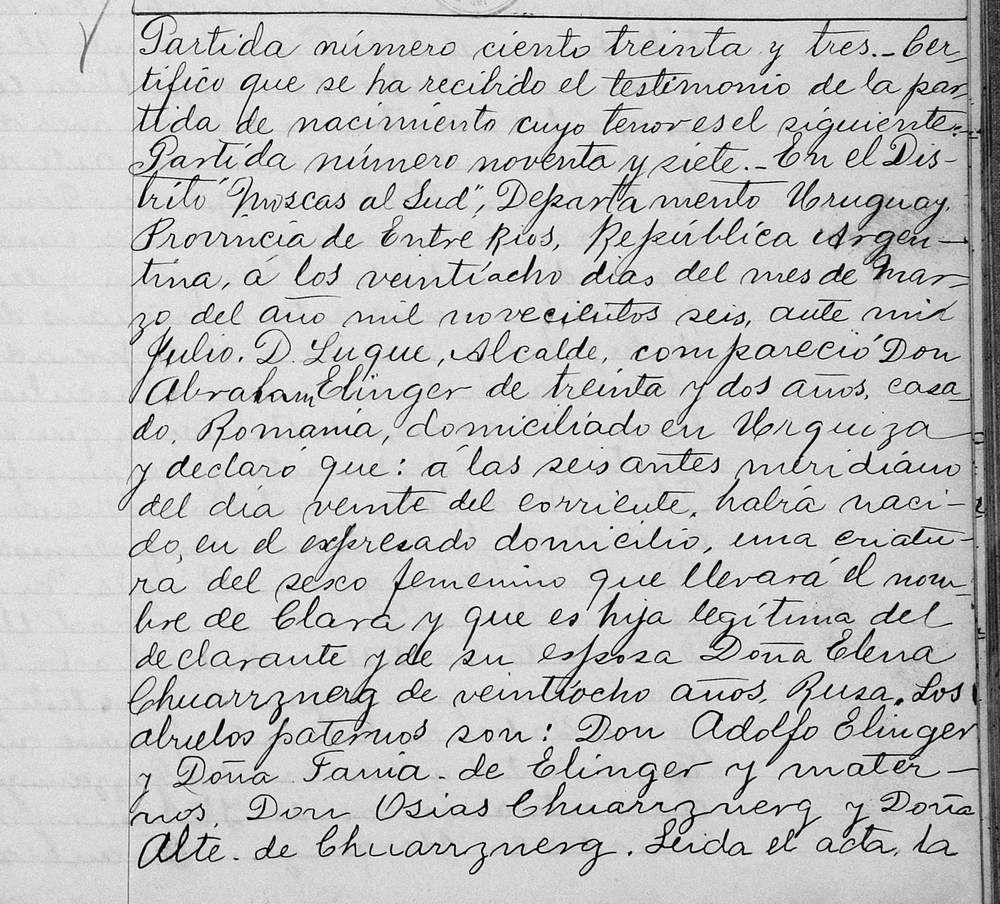 Partida número ciento treinta y tres.- Cer-
tifico que se ha recibido el testimonio de la par-
tida de nacimiento cuyo tenor es el siguiente:-
Partida número noventa y siete.- En el Dis-
trito "Moscas al Sud", Departamento Uruguay,
Provincia de Entre Rios, República Argen-
tina, á los veintiocho dias del mes de Mar-
zo del año mil novecientos seis, ante mi
Julio. D. Luque, Alcalde, compareció Don
Abraham Elinger de treinta y dos años, casa-
do, Romania, domiciliado en Urquiza
y declaró que: á las seis antes meridiano
del dia veinte del corriente, habrá naci-
do, en el expresado domicilio, una criatu-
ra del sexo femenino que llevará el nom-
bre de Clara y que es hija legítima del
declarante y de su esposa Doña Elena
Chuarrznerg de veintiocho años, Rusa. Los
abuelos paternos son: Don Adolfo Elinger
y Doña Fania. de Elinger y mater-
nos, Don Osias Chuarrznerg y Doña
Alte. de Chuarrznerg. Leida el acta, la